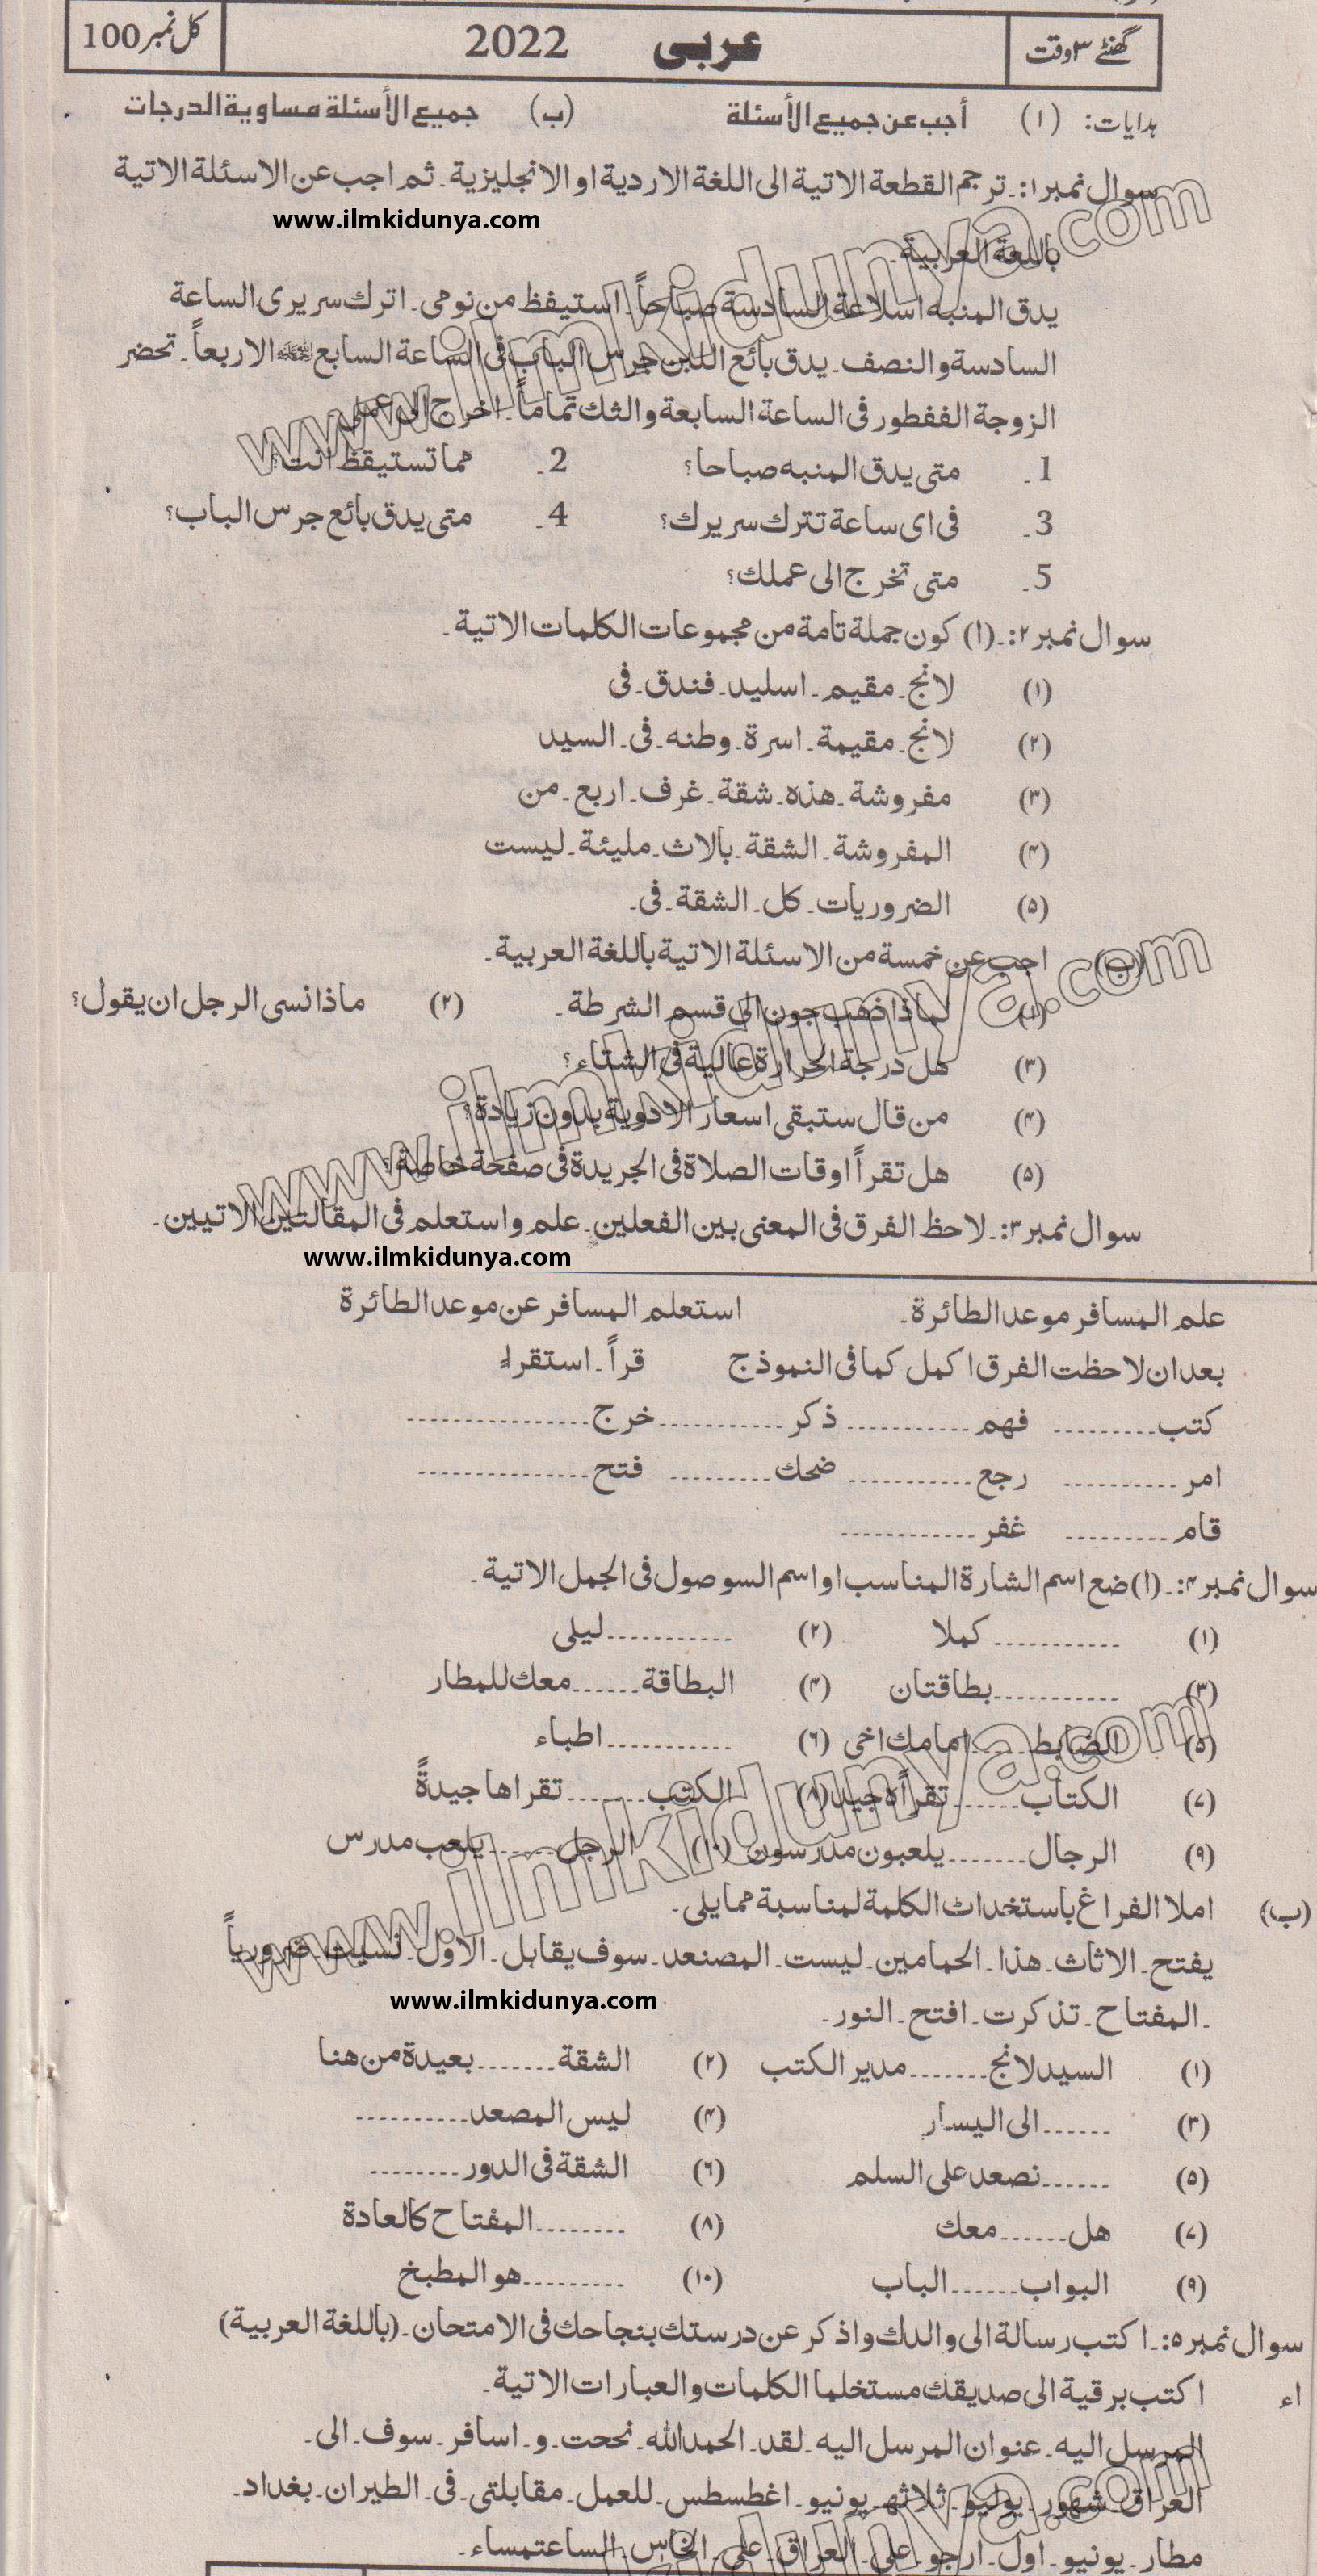 گھنٹے ۳ وقت عربی 2022 کل نمبر 100
ہدایات: (ا) أجب عن جميع الأسئلة (ب) جميع الأسئلة مساوية الدرجات
سوال نمبر ۱:۔ ترجم القطعة الاتية الى اللغة الاردية او الانجليزية۔ ثم اجب عن الاسئلة الاتية
www.ilmkidunya.com
باللغة العربية۔
يدق المنبه اسلاعة السادسة صباحاً۔ استيفظ من نومى۔ اترك سريرى الساعة
السادسة والنصف۔ يدق بائع اللبن جرس الباب فى الساعة السابع ﷺ الاربعاً۔ تحضر
الزوجة الففطور فى الساعة السابعة والثك تماماً۔ اخرج الى عملى
1۔ متى يدق المنبه صباحا؟ 2۔ مما تستيقظ انت؟
3۔ فى اى ساعة تترك سريرك؟ 4۔ متى يدق بائع جرس الباب؟
5۔ متى تخرج الى عملك؟
سوال نمبر ۲:۔ (ا) كون جملة تامة من مجموعات الكلمات الاتية۔
(۱) لانج۔ مقيم۔ اسليد۔ فندق۔ فى
(۲) لانج۔ مقيمة۔ اسرة۔ وطنه۔ فى۔ السيد
(۳) مفروشة۔ هذه۔ شقة۔ غرف۔ اربع۔ من
(۴) المفروشة۔ الشقة۔ بالاث۔ مليئة۔ ليست
(۵) الضروريات۔ كل۔ الشقة۔ فى۔
(ب) اجب عن خمسة من الاسئلة الاتية باللغة العربية۔
(۱) لماذا ذهب جون الى قسم الشرطة۔ (۲) ماذا نسى الرجل ان يقول؟
(۳) هل درجة الحرارة عالية فى الشتاء؟
(۴) من قال ستبقى اسعار الادوية بدون زيادة؟
(۵) هل تقرأ اوقات الصلاة فى الجريدة فى صفحة خاصة؟
سوال نمبر ۳:۔ لاحظ الفرق فى المعنى بين الفعلين۔ علم واستعلم فى المقالتين الاتيين۔
www.ilmkidunya.com
علم المسافر موعد الطائرة۔ استعلم المسافر عن موعد الطائرة
بعد ان لاحظت الفرق اكمل كما فى النموذج قرأ۔ استقراء
كتب.......... فهم............ ذكر............ خرج................
امر........... رجع............ ضحك.......... فتح................
قام.......... غفر.............
سوال نمبر ۴:۔ (ا) ضع اسم الشارة المناسب او اسم السوصول فى الجمل الاتية۔
(۱) ............كملا (۲) ............ليلى
(۳) ............بطاقتان (۴) البطاقة......معك للمطار
(۵) الضابط......امامك اخى (۶) ............اطباء
(۷) الكتاب.......تقرأه جيد (۸) الكتب.......تقراها جيدةً
(۹) الرجال.......يلعبون مدرسون (۱۰) الرجل......يلعب مدرس
(ب) املا الفراغ باستخداث الكلمة لمناسبة مما يلى۔
يفتح۔ الاثاث۔ هذا۔ الحمامين۔ ليست۔ المصنعد۔ سوف يقابل۔ الاول۔ نسيت۔ ضرورياً
۔ المفتاح۔ تذكرت۔ افتح۔ النور۔
www.ilmkidunya.com
(۱) السيد لانج.......مدير الكتب (۲) الشقة.......بعيدة من هنا
(۳) ......الى اليسار (۴) ليس المصعد..........
(۵) ......نصعد على السلم (۶) الشقة فى الدور........
(۷) هل......معك (۸) ........المفتاح كالعادة
(۹) البواب......الباب (۱۰) .........هو المطبخ
سوال نمبر ۵:۔ اكتب رسالة الى والدك واذكر عن درستك بنجاحك فى الامتحان۔ (باللغة العربية)
اء اكتب برقية الى صديقك مستخلما الكلمات والعبارات الاتية۔
المرسل اليه۔ عنوان المرسل اليه۔ لقد۔ الحمدالله۔ نححت۔ و۔ اسافر۔ سوف۔ الى۔
العراق۔ شهور۔ يوليو۔ ثلاثه۔ يونيو۔ اغطسطس۔ للعمل۔ مقابلتى۔ فى۔ الطيران۔ بغداد۔
مطار۔ يونيو۔ اول۔ ارجو۔ على۔ العراق۔ على۔ الخاس۔ الساعتمساء۔